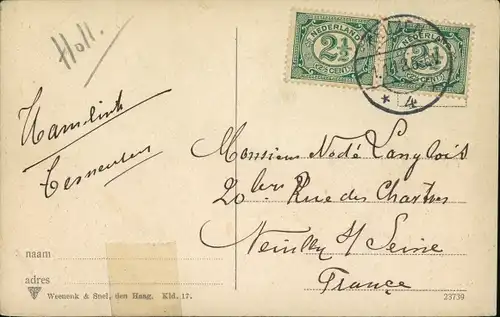 Holl.
NEDERLAND
2½
CENT
NEDERLAND
2½
CENT
4
Hamelink
Terneuzen
Monsieur Nodé Langlois
20 bis Rue des Chartres
Neuilly s/ Seine
France
naam
adres
Weenenk & Snel, den Haag. Kld. 17.
23739